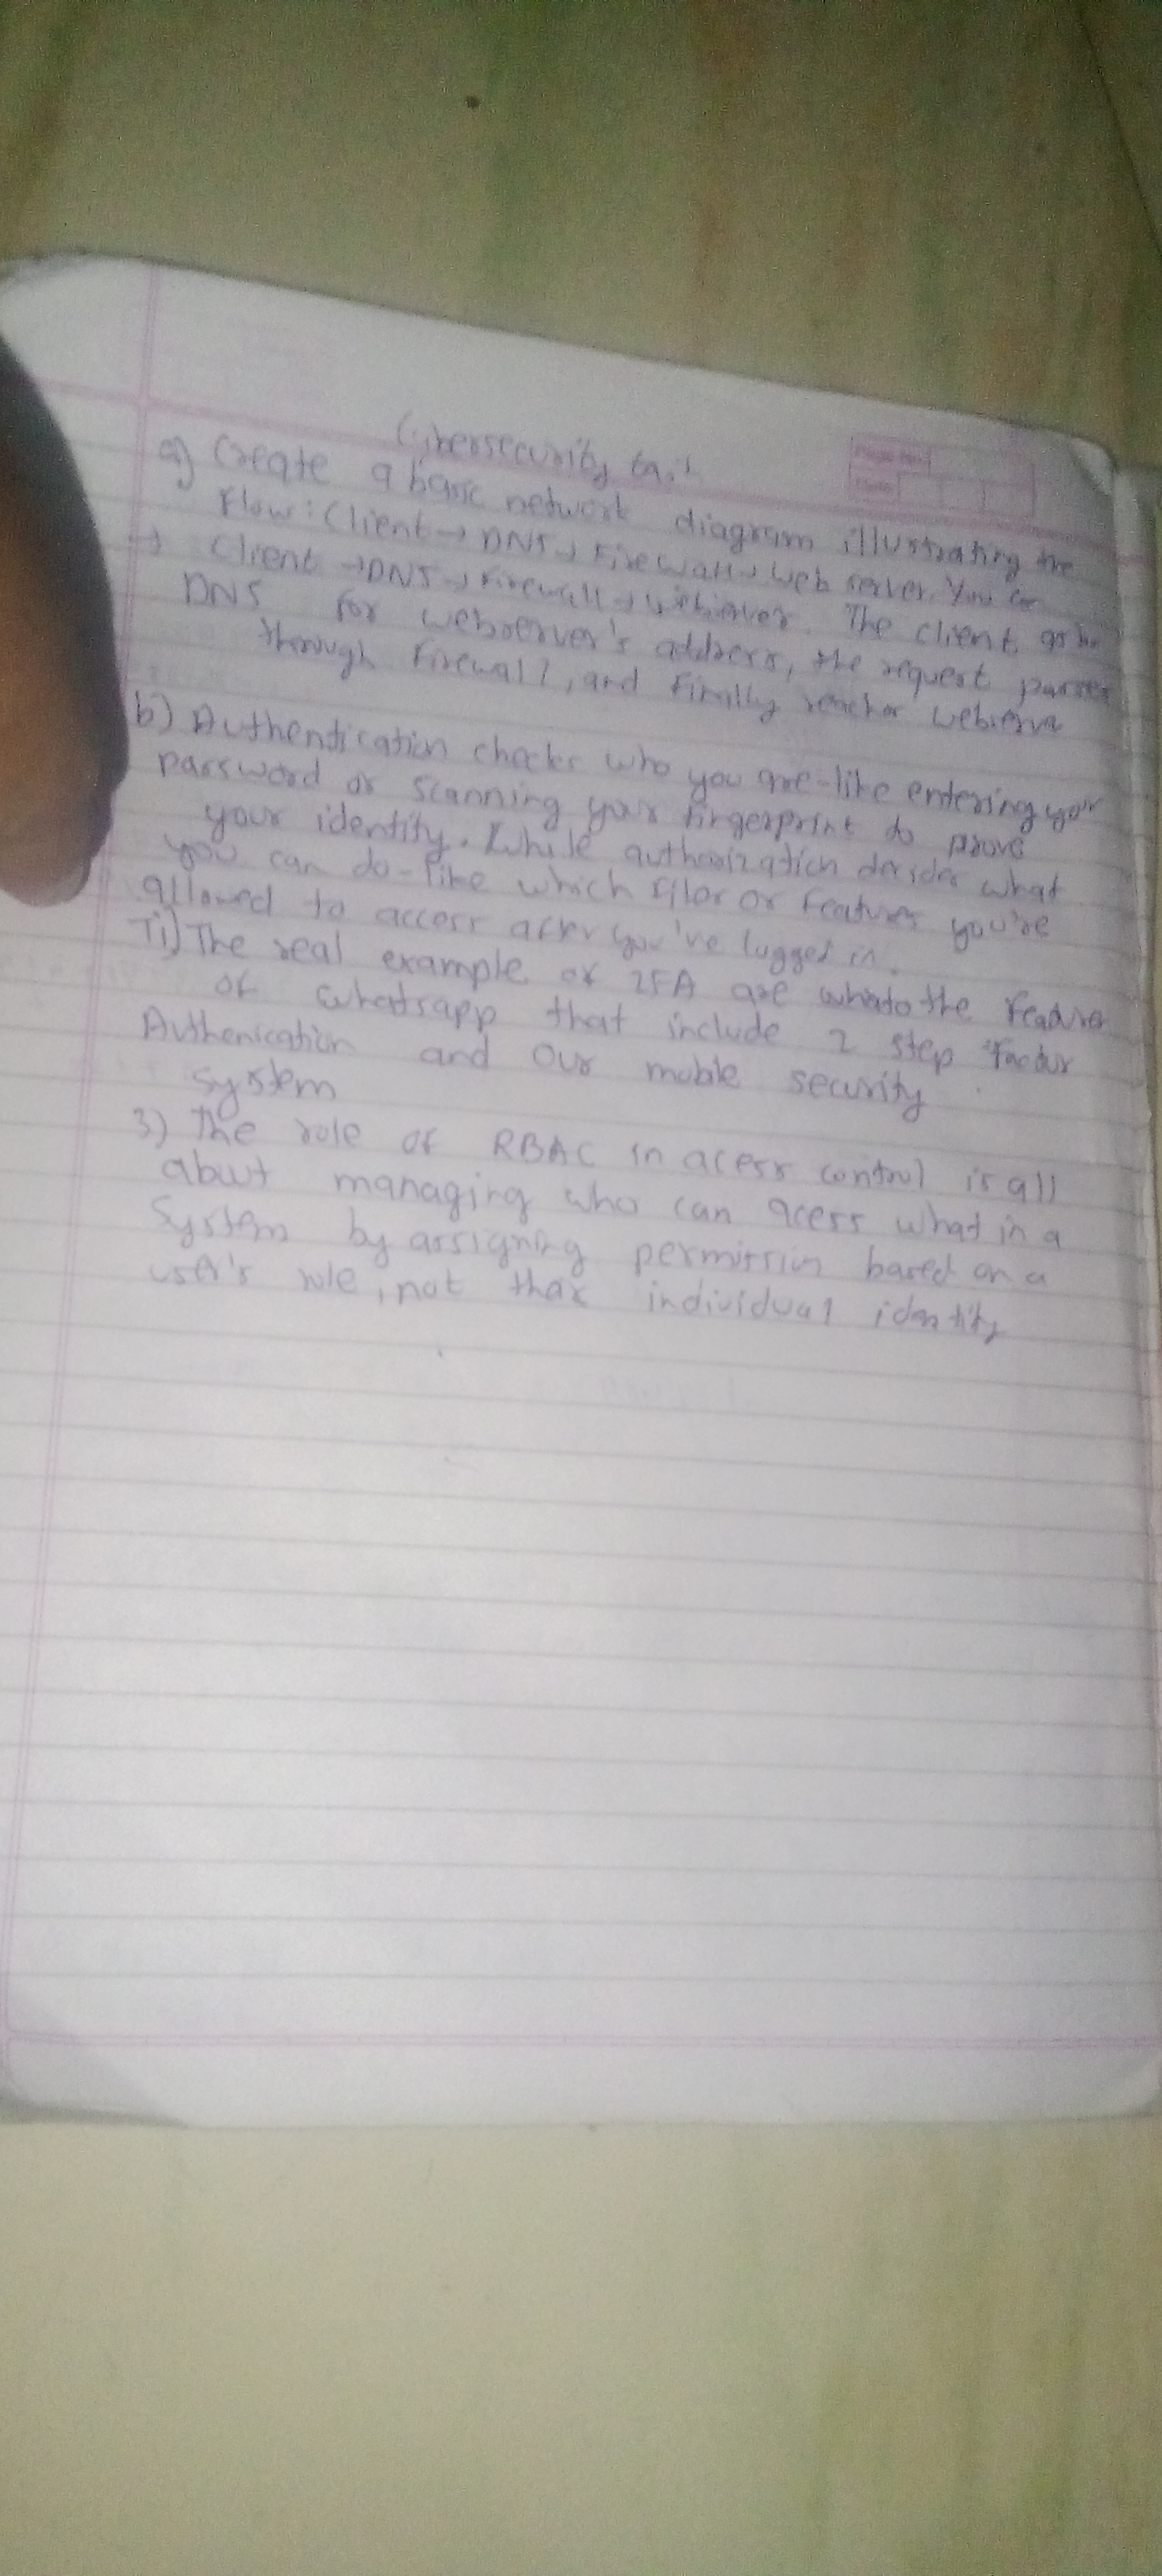 Cybersecurity
a) Create a basic network diagram illustrating the
Flow: Client → DNS → Firewall → Web server. You
→ Client → DNS → Firewall → Webserver. The client
DNS for webserver's address, the request passes
through Firewall, and Finally reaches webserver
b) Authentication checks who you are-like entering your
password or scanning your fingerprint to prove
your identity. While authorization decides what
you can do-like which files or features you're
allowed to access after you've logged in.
ii) The real example of 2FA are the features
of whatsapp that include 2 step factor
Authenication and our mobile security
system
3) The role of RBAC in acess control is all
about managing who can acess what in a
System by assigning permission based on a
user's role, not individual identity